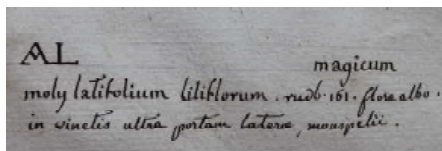 AL
magicum
moly latifolium liliflorum . rudb . 161 . flore albo .
in vinetis ultra portam laterae, monspelii .